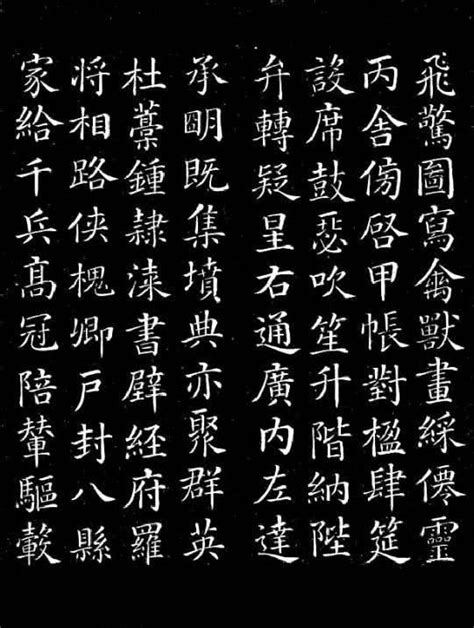 飛驚圖寫禽獸畫綵僊靈
丙舍傍啓甲帳對楹肆筵
設席鼓瑟吹笙升階納陛
弁轉疑星右通廣内左達
承朙既集墳典亦聚群英
杜藁鍾隸漆書壁經府羅
将相路俠槐卿戶封八縣
家給千兵髙冠陪輦驅轂